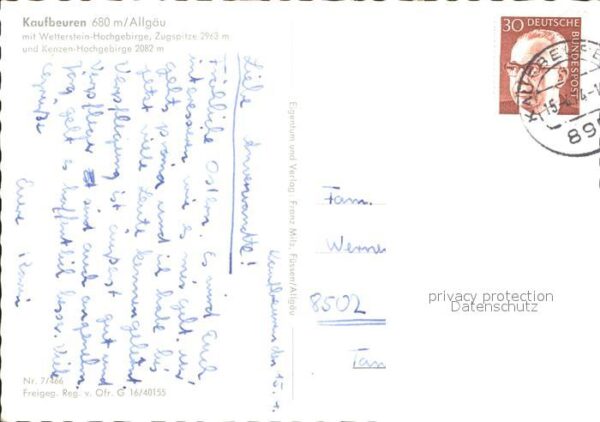 Kaufbeuren 680 m/Allgäu
mit Wetterstein-Hochgebirge, Zugspitze 2963 m
und Kenzen-Hochgebirge 2082 m
Kaufbeuren den 15.4.
Liebe Anverwandte!
Fröhliche Ostern. Es wird Euch
interessieren wie es mir geht. mir
gehts prima und ich habe bis
jetzt viele Leute kennengelernt
Verpflegung ist äußerst gut und
Verpfleger sind auch angenehm
geht es hoffentlich besser. Viele
Grüße
Eure
Eigentum und Verlag: Franz Milz, Füssen/Allgäu
30 DEUTSCHE BUNDESPOST
KAUFBEUREN
15.-4.74-1
895
Fam.
Werne
8502
privacy protection
Datenschutz
Nr. 7/466
Freigeg. Reg. v. Ofr. G 16/40155